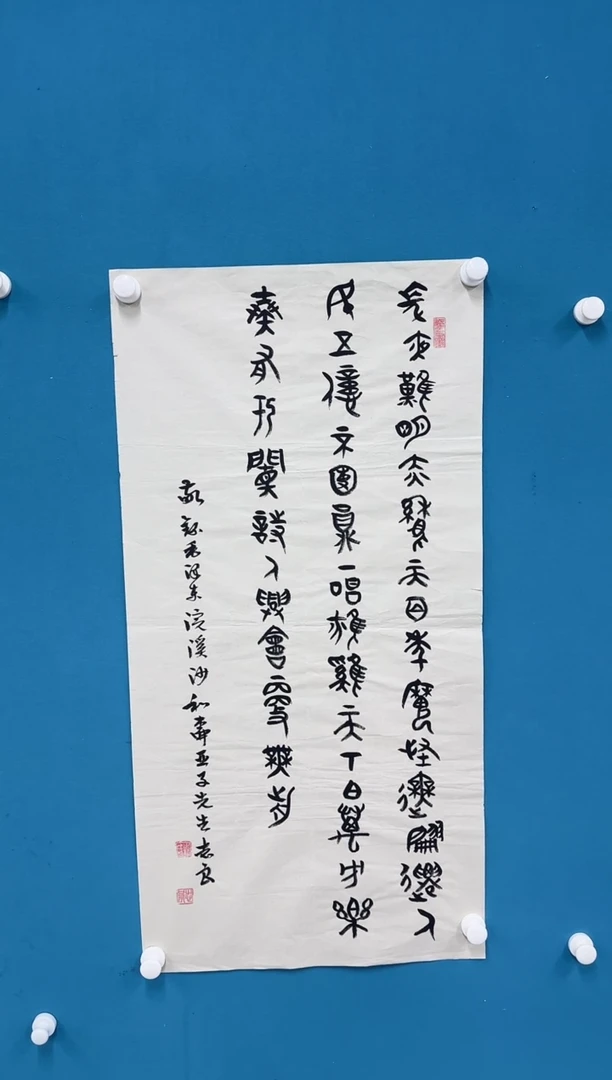 長夜難明赤縣天百年魔怪舞翩躚人
民五億不團圓一唱雄雞天下白萬方樂
奏有于闐詩人興會更無前
敬錄毛泽东浣溪沙和柳亚子先生志良